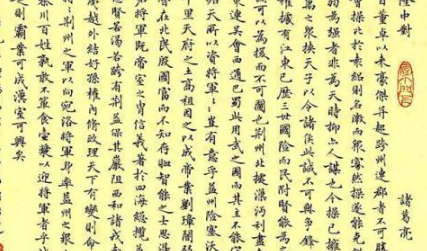 隆中对
諸葛亮
自董卓以来豪傑并起跨州連郡者不可勝
曹操比於袁紹則名微而衆寡然操遂能克紹
弱為強者非為天時抑亦人謀也今操已擁
萬之衆挾天子以令諸侯此誠不可與爭鋒
權據有江東已歷三世國險而民附賢能為
可以為援而不可圖也荆州北據漢沔利盡
東連吳會西通巴蜀此用武之國而其主不能
殆天所以資將軍豈有意乎益州險塞沃
千里天府之土高祖因之以成帝業劉璋闇
在北民殷國富而不知存恤智能之士思得
君將軍既帝室之胄信義著於四海總攬
思賢若渴若跨有荆益保其巖阻西和諸戎
越外結好孫權内修政理天下有變則命
將荆州之軍以向宛洛將軍身率益州之衆
秦川百姓孰敢不簞食壺漿以迎將軍者乎
則霸業可成漢室可興矣